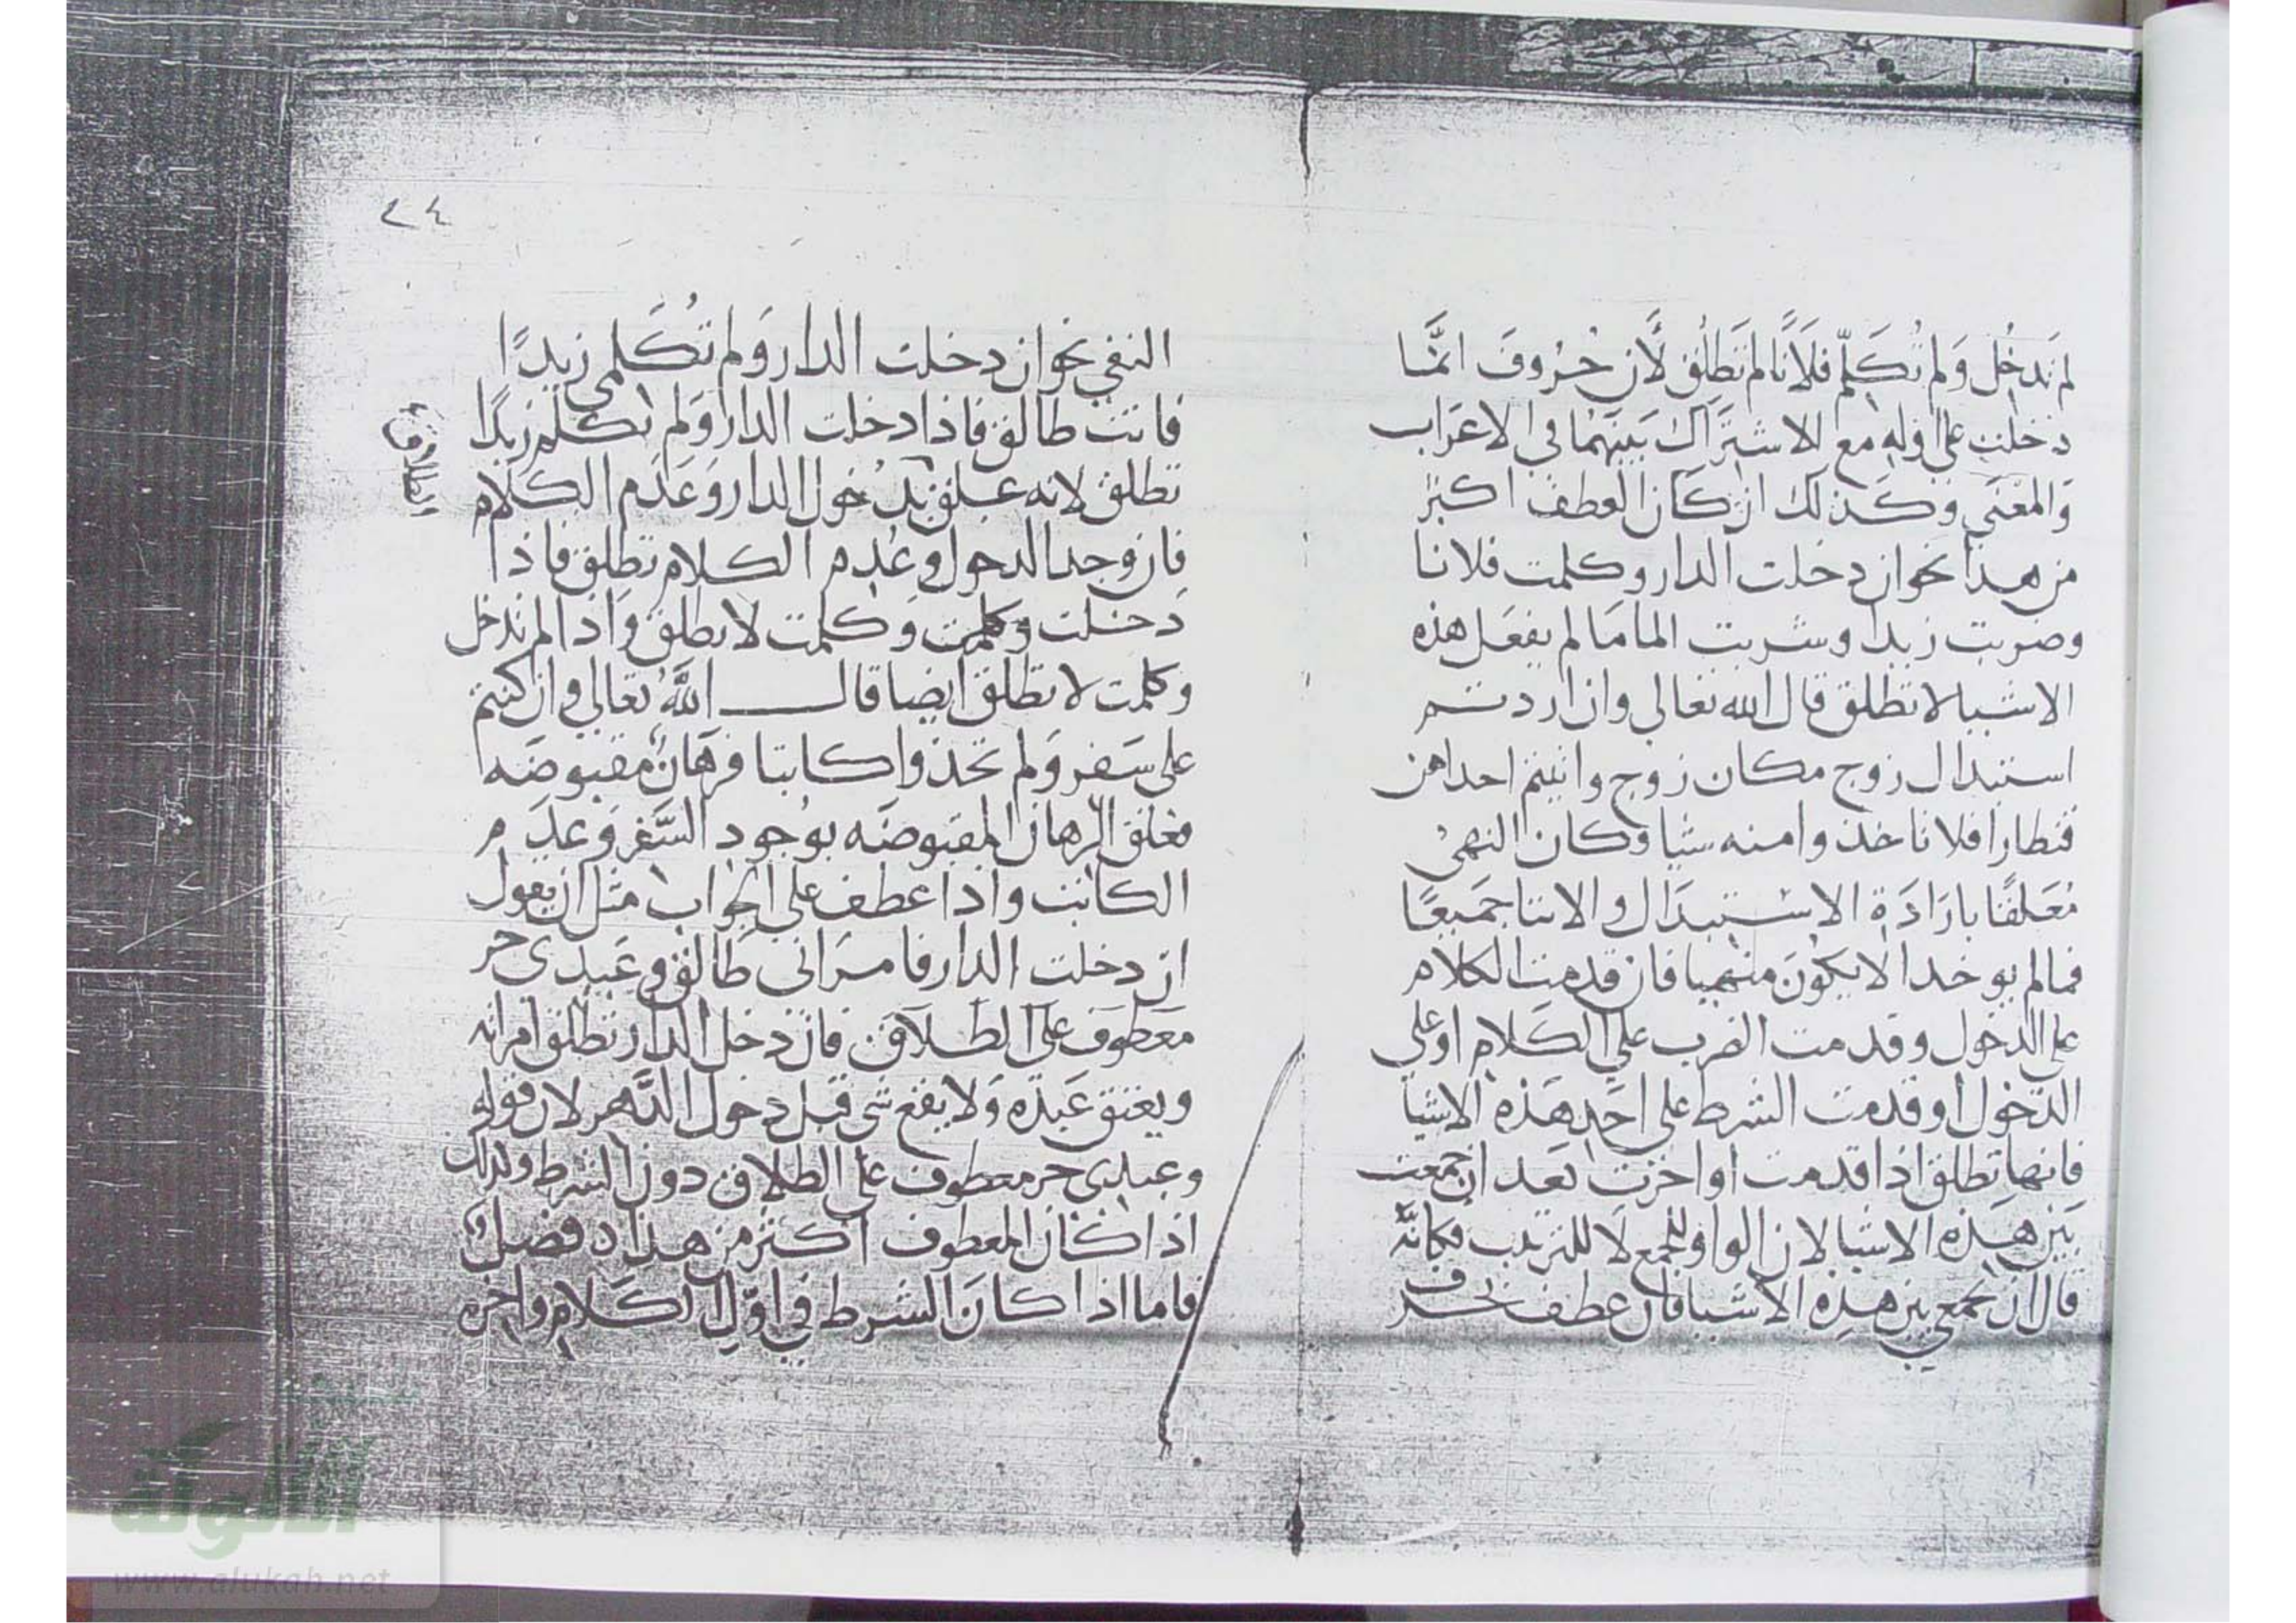 لم تدخُل وَلم تُكَلّم فلَانًا لم تَطلُق لأن حُروفَ انمَّا
دخلت على اوله مع الاشتَراك بَينَهمَا في الاعرَاب
وَالمعْنَى وكَذلك ان كَان العطف اكثر
من هذا نحو ان دخلت الدار وكلمت فلانا
وضربت زيدا وشربت الما مَا لم يفعَل هذه
الاشيا لا تطلق قال الله تعالى وان اردتم
استبدال زوج مكان زوج واتيتم احداهن
قنطارا فلا تاخذوا منه شيا وكان النهيُ
مُعَلقًا بارَادَة الاستبدَال والايتا جَميعًا
فمالم يوخدا لا يكُونَ منهيا فان قدمت الكلام
على الدخول وقدمت الضرب على الكَلام او على
الدّخول او قدمت الشرط على احَدِ هَذه الاشيا
فانها تطلق اذا قدمت او اخرت بَعد ان جمعت
بَين هذه الاشيا لان الواو للجمع لا للترتيب فكانَّه
قال ان تجمع بين هذه الاشيا فان عطف بحرف
٢٤
النفي نحو ان دخلت الدار وَلم تُكَلمي زيدًا
فانت طالق فاذا دخلت الدار وَلم تكلم زيدًا
تطلق لانه علق بدُخول الدار وَعَدَم الكلام
فان وجد الدخول وعُدِم الكلام تطلق فاذا
دَخلت وكلمت وَكلمت لا تطلق وَاذا لم تدخل
وكلمت لا تطلق ايضا قال اللَّهُ تعالى وان كنتم
على سَفر وَلم تجدوا كاتبا فرهَانٌ مقبوضَه
فعلق الرهان المقبوضَه بوجود السَّفر وَعدَم
الكاتب واذا عطف على الجواب مثل ان يقول
ان دخلت الدار فامرَاتي طَالق وعَبدي حر
معَطوف على الطلَاق فان دخل الدار تطلق امراته
ويعتق عَبدُه وَلا يقع شي قبل دخول لان قوله
وعبدي حر معطوف على الطلاق دون الشرط وكذلك
اذا كان المعطوف اكثر من هذا فصلٌ
فاما اذا كانَ الشرط في اوّل الكَلام واخره
الطلاق
www.alukah.net
الألوكة